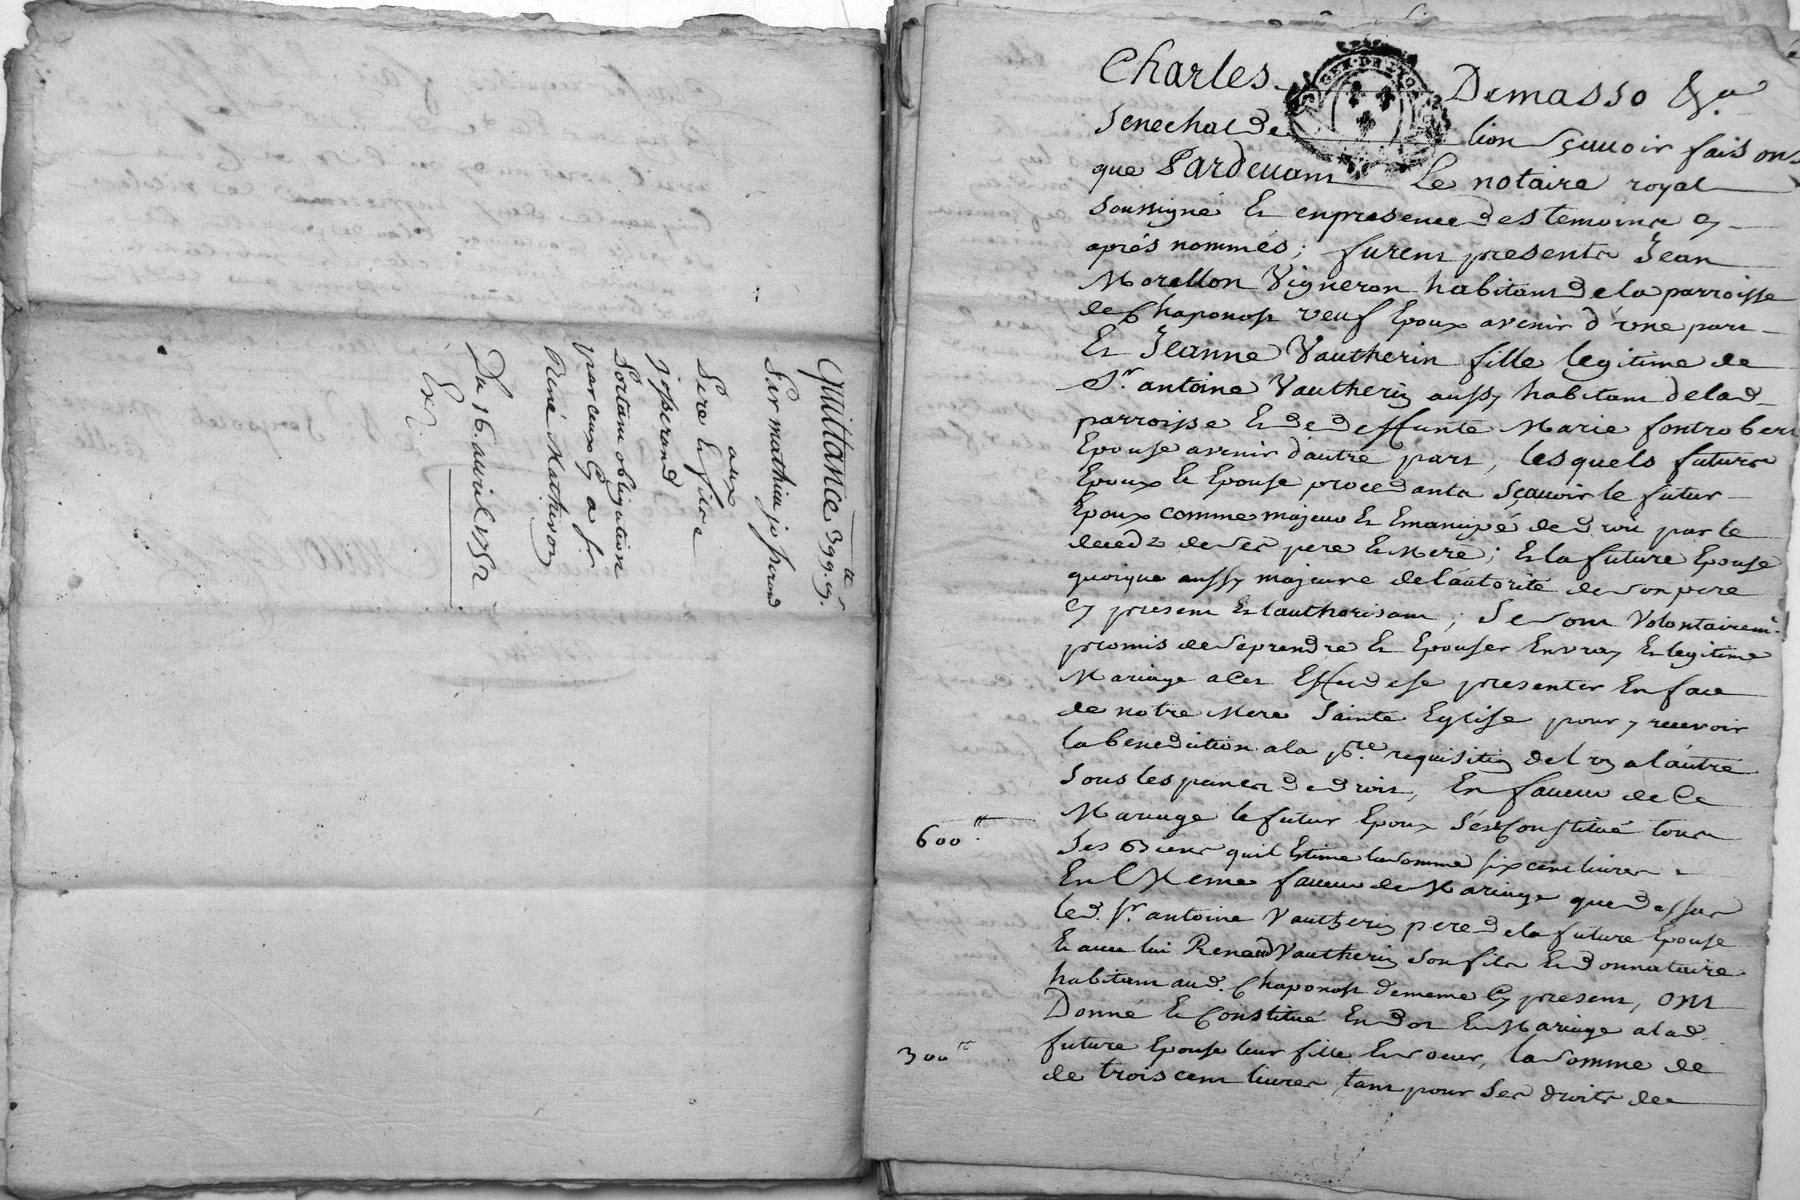 quittance 399.tt 5.s
Sur mathieu josserand
aux
Sere et fils
josserand
Portant obligation
par ceux cy a sr
René Matheron
Du 16. avril 1752
Ex
Charles Demasso &a
Senechal de lion sçauoir faisons
que Pardeuant Le notaire royal
soussigné Et en presence des temoins cy
aprés nommés; furent presents Jean
Morellon Vigneron habitant de la parroisse
de Chaponost veuf Epoux avenir d'vne part
Et Jeanne Vautherin fille legitime de
Sr. antoine Vautherin aussy habitant de lad.
parroisse Et de deffunte Marie fontrobert
Epouse avenir d'autre part, lesquels futurs
Epoux Et Epouse procedants sçauoir le futur
Epoux comme majeur Et Emancipé de droit par le
decedz de ses pere Et Mere; Et la future Epouse
quoique aussy majeure de l'autorité de son pere
cy present Et l'authorisant; Se sont Volontairemt.
promis de se prendre Et Epouser En vray Et legitime
Mariage a Cet Effet de se presenter En face
de notre Mere Sainte Eglise pour y receuoir
la benediction a la pre. requisition de l'vn a l'autre
sous les peines de droit, En faueur de Ce
Mariage le futur Epoux s'est Constitué tous
600.tt
Ses Biens qu'il Estime la somme six cent liures
En Meme faueur de Mariage que dessus
led. Sr. antoine Vautherin pere de la future Epouse
Et auec lui René Vautherin son fils Et donnataire
habitant aud. Chaponost de meme cy present, ont
Donné Et Constitué En dot En Mariage a lad.
future Epouse leur fille Et soeur, la somme de
300tt
de trois cent liures tant pour ses droits de